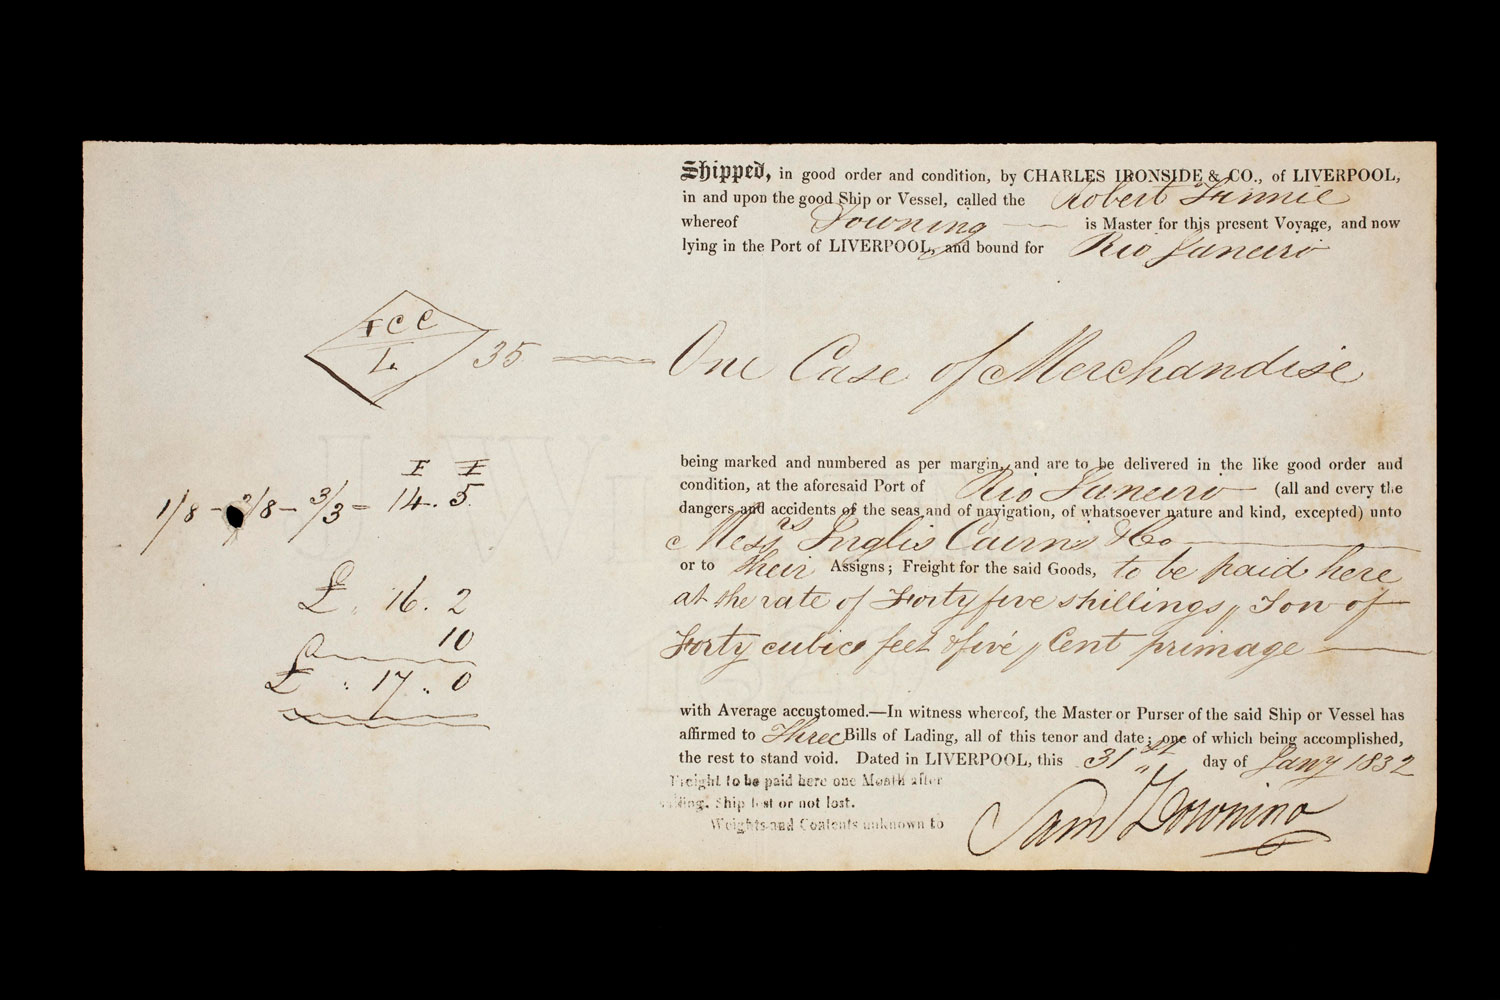 Shipped, in good order and condition, by CHARLES IRONSIDE & CO., of LIVERPOOL,
in and upon the good Ship or Vessel, called the Robert Finnie
whereof Downing is Master for this present Voyage, and now
lying in the Port of LIVERPOOL, and bound for Rio Janeiro
ICC
L
35 One Case of Merchandise
being marked and numbered as per margin, and are to be delivered in the like good order and
condition, at the aforesaid Port of Rio Janeiro (all and every the
dangers and accidents of the seas and of navigation, of whatsoever nature and kind, excepted) unto
Messrs Inglis Cairns & Co
or to their Assigns; Freight for the said Goods, to be paid here
at the rate of Forty five shillings Ton of
Forty cubic feet & five Cent primage
F I
1/8 - 2/8 - 3/3 = 14. 5.
£ . 16. 2
10
£ .. 17 .. 0
with Average accustomed.—In witness whereof, the Master or Purser of the said Ship or Vessel has
affirmed to Three Bills of Lading, all of this tenor and date; one of which being accomplished,
the rest to stand void. Dated in LIVERPOOL, this 31st day of Jany 1832
Freight to be paid here one Month after
Ship lost or not lost.
Weights and Contents unknown to
Sam Downing